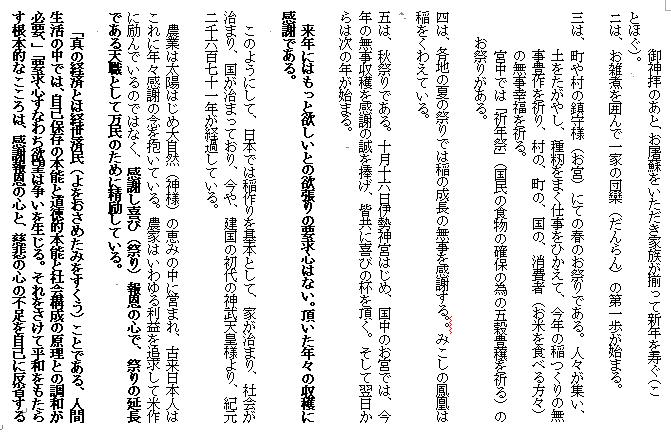 御神拝のあと、お屠蘇をいただき家族が揃って新年を寿ぐ（こ
とほぐ）。
二は、お雑煮を囲んで一家の団欒（だんらん）の第一歩が始まる。
三は、町や村の鎮守様（お宮）にての春のお祭りである。人々が集い、
土をたがやし、種籾をまく仕事をひかえて、今年の稲つくりの無
事豊作を祈り、村の、町の、国の、消費者（お米を食べる方々）
の無事幸福を祈る。
宮中では「祈年祭」（国民の食物の確保の為の五穀豊穣を祈る）の
お祭りがある。
四は、各地の夏の祭りでは稲の成長の無事を感謝する。。みこしの鳳凰は
稲をくわえている。
五は、秋祭りである。十月十六日伊勢神宮はじめ、国中のお宮では、今
年の無事収穫を感謝の誠を捧げ、皆共に喜びの杯を頂く。そして翌日か
らは次の年が始まる。
来年にはもっと欲しいとの欲張りの要求心はない。頂いた年々の収穫に
感謝である。
このようにして、日本では稲作りを基本として、家が治まり、社会が
治まり、国が治まっており、今や、建国の初代の神武天皇様より、紀元
二千六百七十一年が経過している。
農業は太陽はじめ大自然（神様）の恵みの中に営まれ、古来日本人は
これに年々感謝の念を抱いている。農家はいわゆる利益を追求して米作
に励んでいるのではなく、感謝し喜び（祭り）報恩の心で、祭りの延長
である天職として万民のために精励している。
「真の経済とは経世済民（よをおさめたみをすくう）ことである、人間
生活の中では、自己保存の本能と道徳的本能と社会構成の原理との調和が
必要、」要求心すなわち欲望は争いを生じる。それをさけて平和をもたら
す根本的なこころは、感謝報恩の心と、慈悲の心の不足を自己に反省する